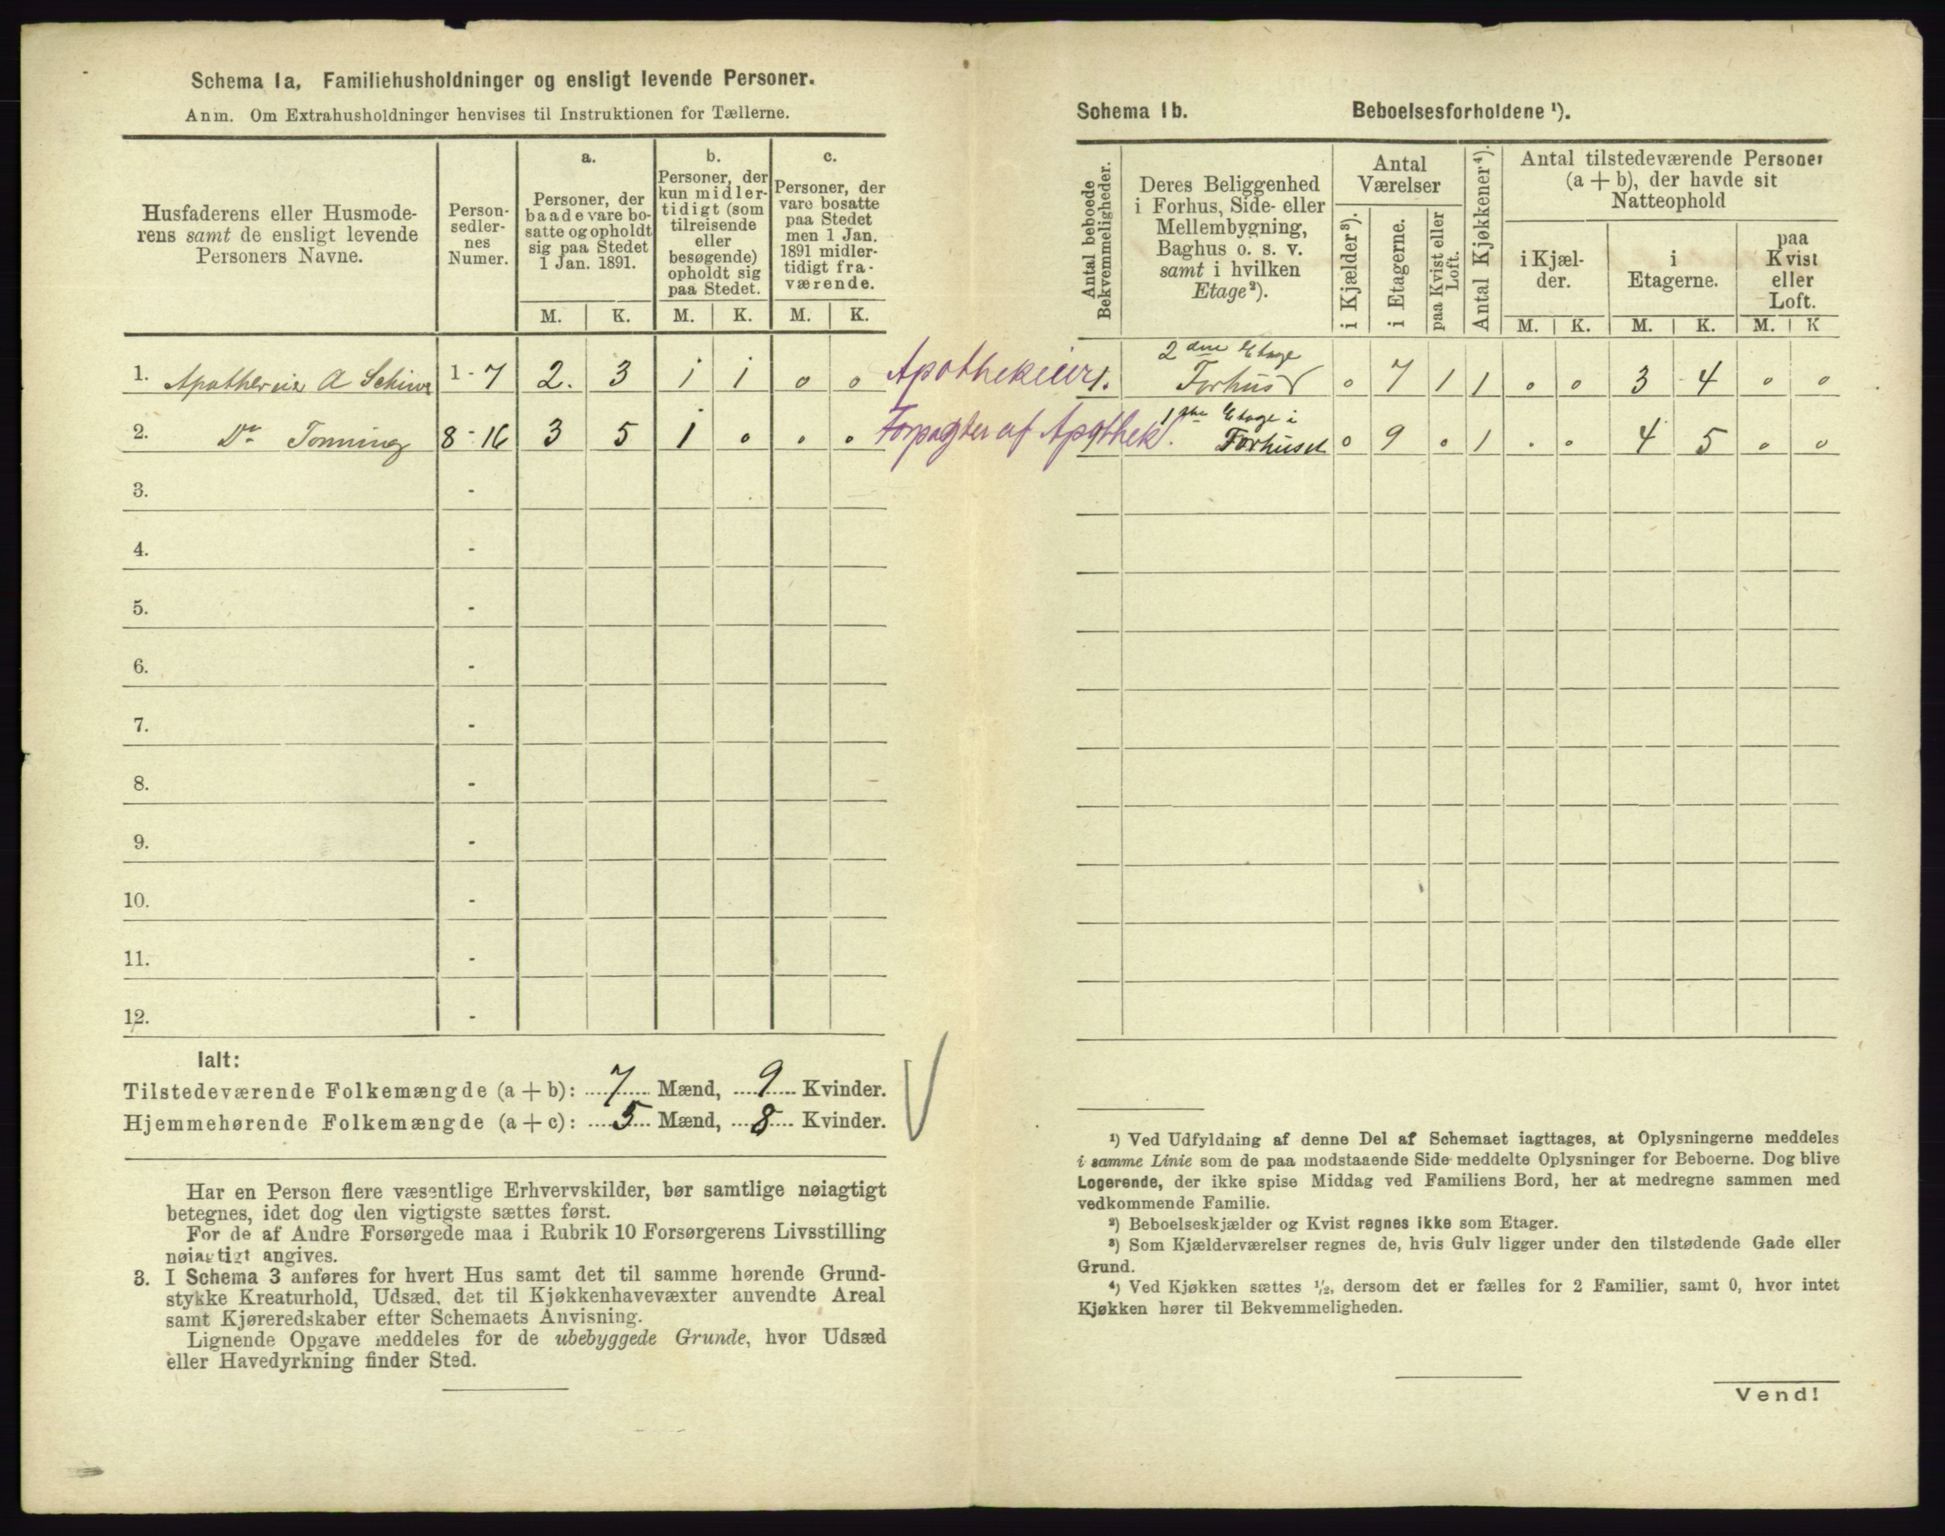 Schema 1a, Familiehusholdninger og ensligt levende Personer.
Anm. Om Extrahusholdninger henvises til Instruktionen for Tællerne.
Husfaderens eller Husmode-
rens samt de ensligt levende
Personers Navne.
Person-
sedler-
nes
Numer.
a.
Personer, der
baade vare bo-
satte og opholdt
sig paa Stedet
1 Jan. 1891.
b.
Personer, der
kun midler-
tidigt (som
tilreisende
eller
besøgende)
opholdt sig
paa Stedet.
c.
Personer, der
vare bosatte
paa Stedet
men 1 Jan.
1891 midler-
tidigt fra-
værende.
M. K. M. K. M. K.
1. A 1 - 7 2. 3 1 1 0 0
2. Dr Tonning 8 - 16 3 5 1 0 0 0
3. -
4. -
5. -
6. -
7. -
8. -
9. -
10. -
11. -
12. -
Ialt:
Tilstedeværende Folkemængde (a + b): 7 Mænd, 9 Kvinder.
Hjemmehørende Folkemængde (a + c): 5 Mænd, 8 Kvinder.
Har en Person flere væsentlige Erhvervskilder, bør samtlige nøiagtigt
betegnes, idet dog den vigtigste sættes først.
For de af Andre Forsørgede maa i Rubrik 10 Forsørgerens Livsstilling
nøiagtigt angives.
3. I Schema 3 anføres for hvert Hus samt det til samme hørende Grund-
stykke Kreaturhold, Udsæd, det til Kjøkkenhavevæxter anvendte Areal
samt Kjøreredskaber efter Schemaets Anvisning.
Lignende Opgave meddeles for de ubebyggede Grunde, hvor Udsæd
eller Havedyrkning finder Sted.
Schema 1b. Beboelsesforholdene ¹).
Antal beboede
Bekvemmeligheder.
Deres Beliggenhed
i Forhus, Side- eller
Mellembygning,
Baghus o. s. v.
samt i hvilken
Etage²).
Antal
Værelser
i Kjælder³).
i Etagerne.
paa Kvist eller
Loft.
Antal Kjøkkener⁴).
Antal tilstedeværende Personer
(a + b), der havde sit
Natteophold
i Kjæl-
der.
i
Etagerne.
paa
Kvist
eller
Loft.
M. K. M. K. M. K
2 den Etage
Apothekeier 1. Forhus 0 7 1 1 0 0 3 4 0 0
1ste Etage i
Forpagter af Apothek 1. Forhuset 0 9 0 1 0 0 4 5 0 0
¹) Ved Udfyldning af denne Del af Schemaet iagttages, at Oplysningerne meddeles
i samme Linie som de paa modstaaende Side meddelte Oplysninger for Beboerne. Dog blive
Logerende, der ikke spise Middag ved Familiens Bord, her at medregne sammen med
vedkommende Familie.
²) Beboelseskjælder og Kvist regnes ikke som Etager.
³) Som Kjælderværelser regnes de, hvis Gulv ligger under den tilstødende Gade eller
Grund.
⁴) Ved Kjøkken sættes ¹/₂, dersom det er fælles for 2 Familier, samt 0, hvor intet
Kjøkken hører til Bekvemmeligheden.
Vend!